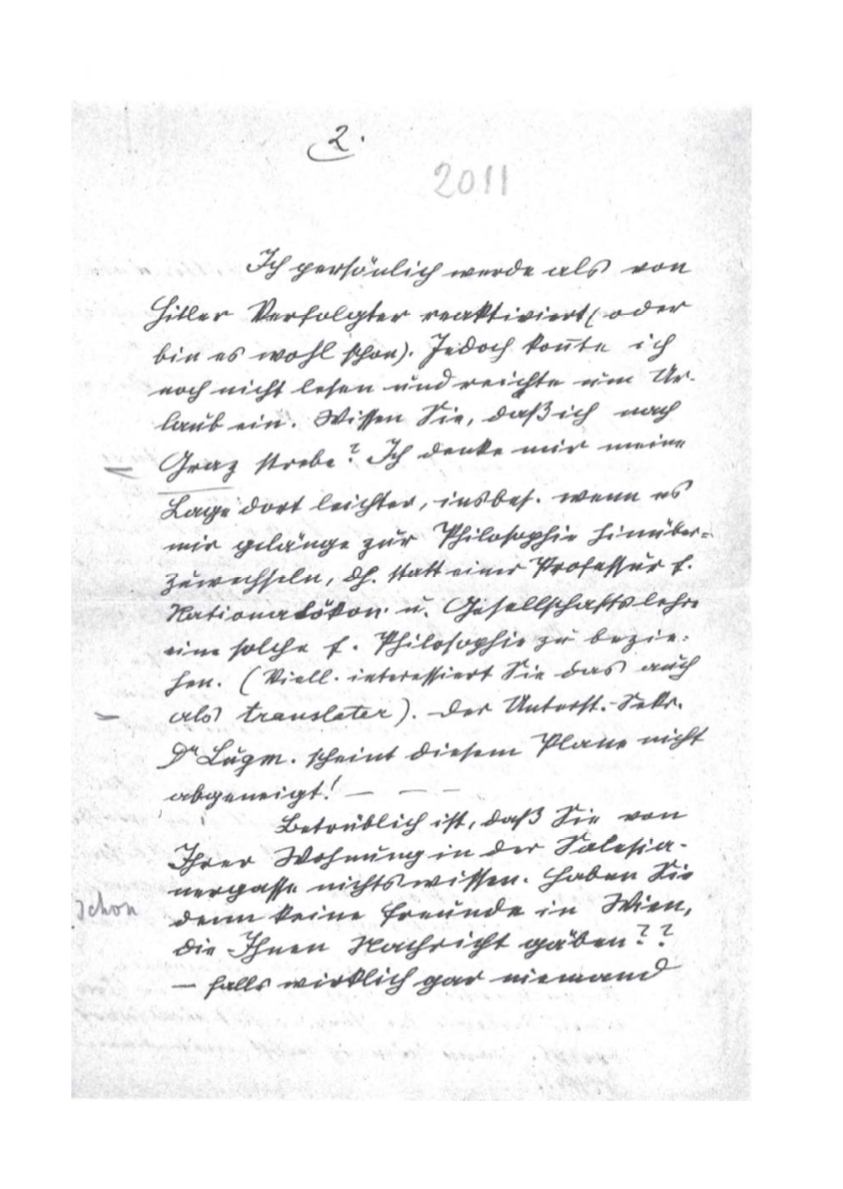 2.
2011
Ich persönlich werde als von
Hitler Verfolgter reaktiviert (oder
bin es wohl schon). Jedoch konnte ich
noch nicht lesen und reichte um Ur-
laub ein. Wissen Sie, daß ich nach
Graz strebe? Ich denke mir meine
Lage dort leichter, insbes. wenn es
mir gelänge zur Philosophie hinüber-
zuwechseln, dh. statt einer Professur f.
Nationalökon. u. Gesellschaftslehre
eine solche f. Philosophie zu bezie-
hen. (Viell. interessiert Sie das auch
als translater). Der Unterst.-Sekr.
Dr Lugm. scheint diesem Plane nicht
abgeneigt! — — —
Betrüblich ist, daß Sie von
Ihrer Wohnung in der Salesia-
nergasse nichts wissen. Haben Sie
schon
denn keine Freunde in Wien,
die Ihnen Nachricht gäben??
— falls wirklich gar niemand